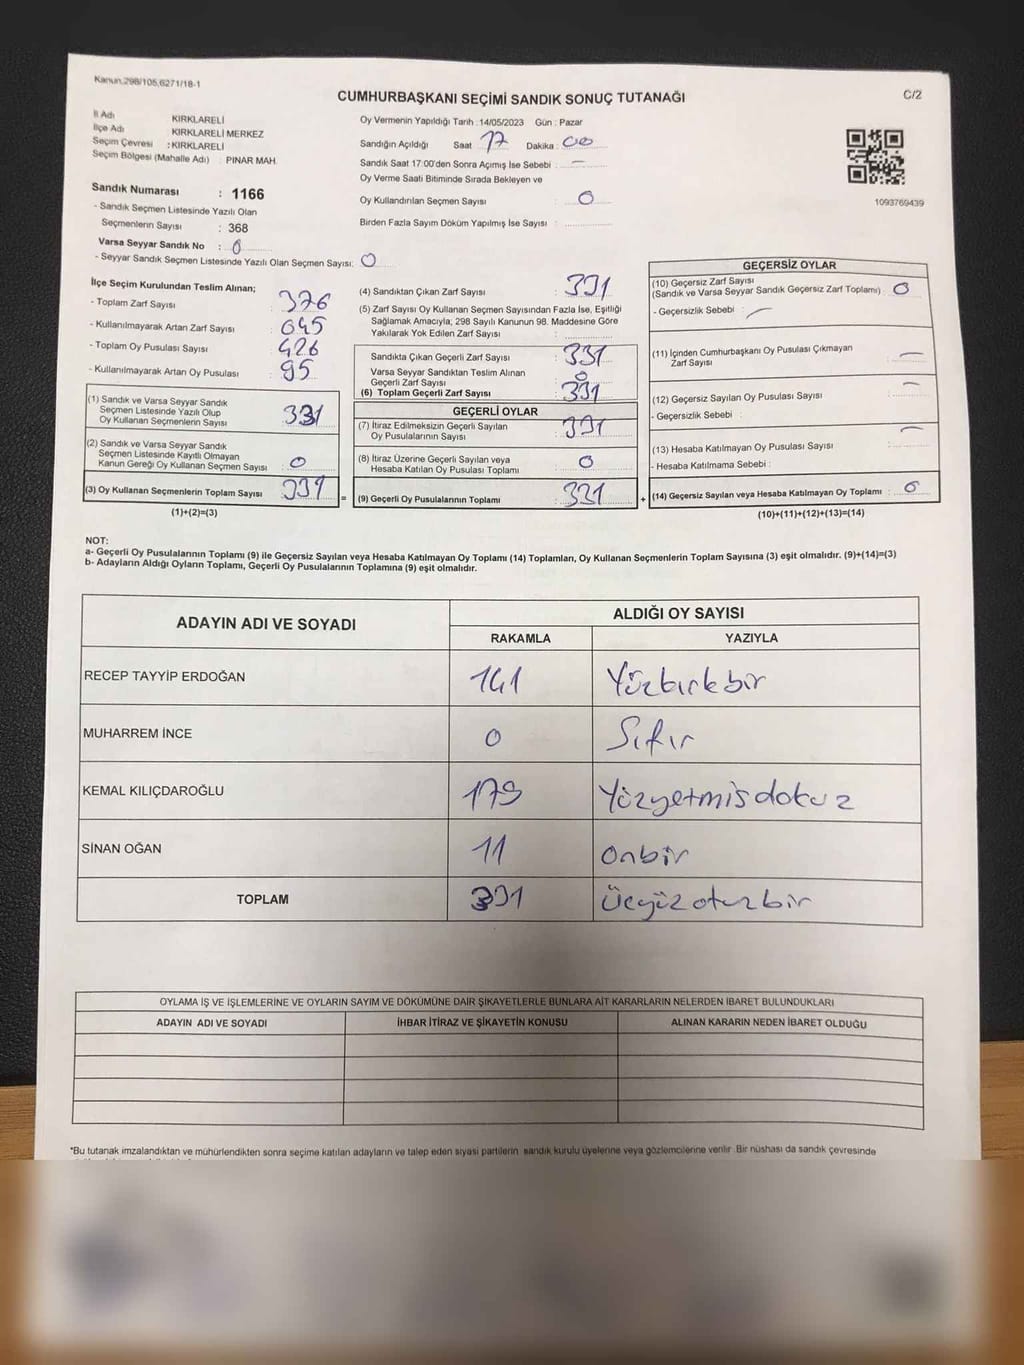 Kanun.298/105,6271/18-1
C/2
CUMHURBAŞKANI SEÇİMİ SANDIK SONUÇ TUTANAĞI
İl Adı KIRKLARELİ
İlçe Adı KIRKLARELİ MERKEZ
Seçim Çevresi : KIRKLARELİ
Seçim Bölgesi (Mahalle Adı) : PINAR MAH.
Sandık Numarası : 1166
- Sandık Seçmen Listesinde Yazılı Olan
Seçmenlerin Sayısı : 368
Varsa Seyyar Sandık No : 0
- Seyyar Sandık Seçmen Listesinde Yazılı Olan Seçmen Sayısı: 0
Oy Vermenin Yapıldığı Tarih :14/05/2023 Gün : Pazar
Sandığın Açıldığı Saat 17 Dakika : 00
Sandık Saat 17:00'den Sonra Açımış İse Sebebi : —
Oy Verme Saati Bitiminde Sırada Bekleyen ve
Oy Kullandırılan Seçmen Sayısı : 0
Birden Fazla Sayım Döküm Yapılmış İse Sayısı :
1093769439
İlçe Seçim Kurulundan Teslim Alınan;
- Toplam Zarf Sayısı : 376
- Kullanılmayarak Artan Zarf Sayısı : 045
- Toplam Oy Pusulası Sayısı : 426
- Kullanılmayarak Artan Oy Pusulası : 95
(1) Sandık ve Varsa Seyyar Sandık
Seçmen Listesinde Yazılı Olup
Oy Kullanan Seçmenlerin Sayısı : 331
(2) Sandık ve Varsa Seyyar Sandık
Seçmen Listesinde Kayıtlı Olmayan
Kanun Gereği Oy Kullanan Seçmen Sayısı : 0
(3) Oy Kullanan Seçmenlerin Toplam Sayısı : 331 =
(1)+(2)=(3)
(4) Sandıktan Çıkan Zarf Sayısı : 331
(5) Zarf Sayısı Oy Kullanan Seçmen Sayısından Fazla İse, Eşitliği
Sağlamak Amacıyla; 298 Sayılı Kanunun 98. Maddesine Göre
Yakılarak Yok Edilen Zarf Sayısı :
Sandıkta Çıkan Geçerli Zarf Sayısı : 331
Varsa Seyyar Sandıktan Teslim Alınan
Geçerli Zarf Sayısı : 0
(6) Toplam Geçerli Zarf Sayısı : 331
GEÇERLİ OYLAR
(7) İtiraz Edilmeksizin Geçerli Sayılan
Oy Pusulalarının Sayısı : 331
(8) İtiraz Üzerine Geçerli Sayılan veya
Hesaba Katılan Oy Pusulası Toplamı : 0
(9) Geçerli Oy Pusulalarının Toplamı : 331 +
GEÇERSİZ OYLAR
(10) Geçersiz Zarf Sayısı
(Sandık ve Varsa Seyyar Sandık Geçersiz Zarf Toplamı) : 0
- Geçersizlik Sebebi : —
(11) İçinden Cumhurbaşkanı Oy Pusulası Çıkmayan
Zarf Sayısı : —
(12) Geçersiz Sayılan Oy Pusulası Sayısı : —
- Geçersizlik Sebebi :
(13) Hesaba Katılmayan Oy Pusulası Sayısı : —
- Hesaba Katılmama Sebebi :
(14) Geçersiz Sayılan veya Hesaba Katılmayan Oy Toplamı : 0
(10)+(11)+(12)+(13)=(14)
NOT:
a- Geçerli Oy Pusulalarının Toplamı (9) ile Geçersiz Sayılan veya Hesaba Katılmayan Oy Toplamı (14) Toplamları, Oy Kullanan Seçmenlerin Toplam Sayısına (3) eşit olmalıdır. (9)+(14)=(3)
b- Adayların Aldığı Oyların Toplamı, Geçerli Oy Pusulalarının Toplamına (9) eşit olmalıdır.
ADAYIN ADI VE SOYADI ALDIĞI OY SAYISI
RAKAMLA YAZIYLA
RECEP TAYYİP ERDOĞAN 141 Yüzkırkbir
MUHARREM İNCE 0 Sıfır
KEMAL KILIÇDAROĞLU 179 Yüzyetmişdokuz
SİNAN OĞAN 11 Onbir
TOPLAM 331 Üçyüzotuzbir
OYLAMA İŞ VE İŞLEMLERİNE VE OYLARIN SAYIM VE DÖKÜMÜNE DAİR ŞİKAYETLERLE BUNLARA AİT KARARLARIN NELERDEN İBARET BULUNDUKLARI
ADAYIN ADI VE SOYADI İHBAR İTİRAZ VE ŞİKAYETİN KONUSU ALINAN KARARIN NEDEN İBARET OLDUĞU
*Bu tutanak imzalandıktan ve mühürlendikten sonra seçime katılan adayların ve talep eden siyasi partilerin sandık kurulu üyelerine veya gözlemcilerine verilir. Bir nüshası da sandık çevresinde